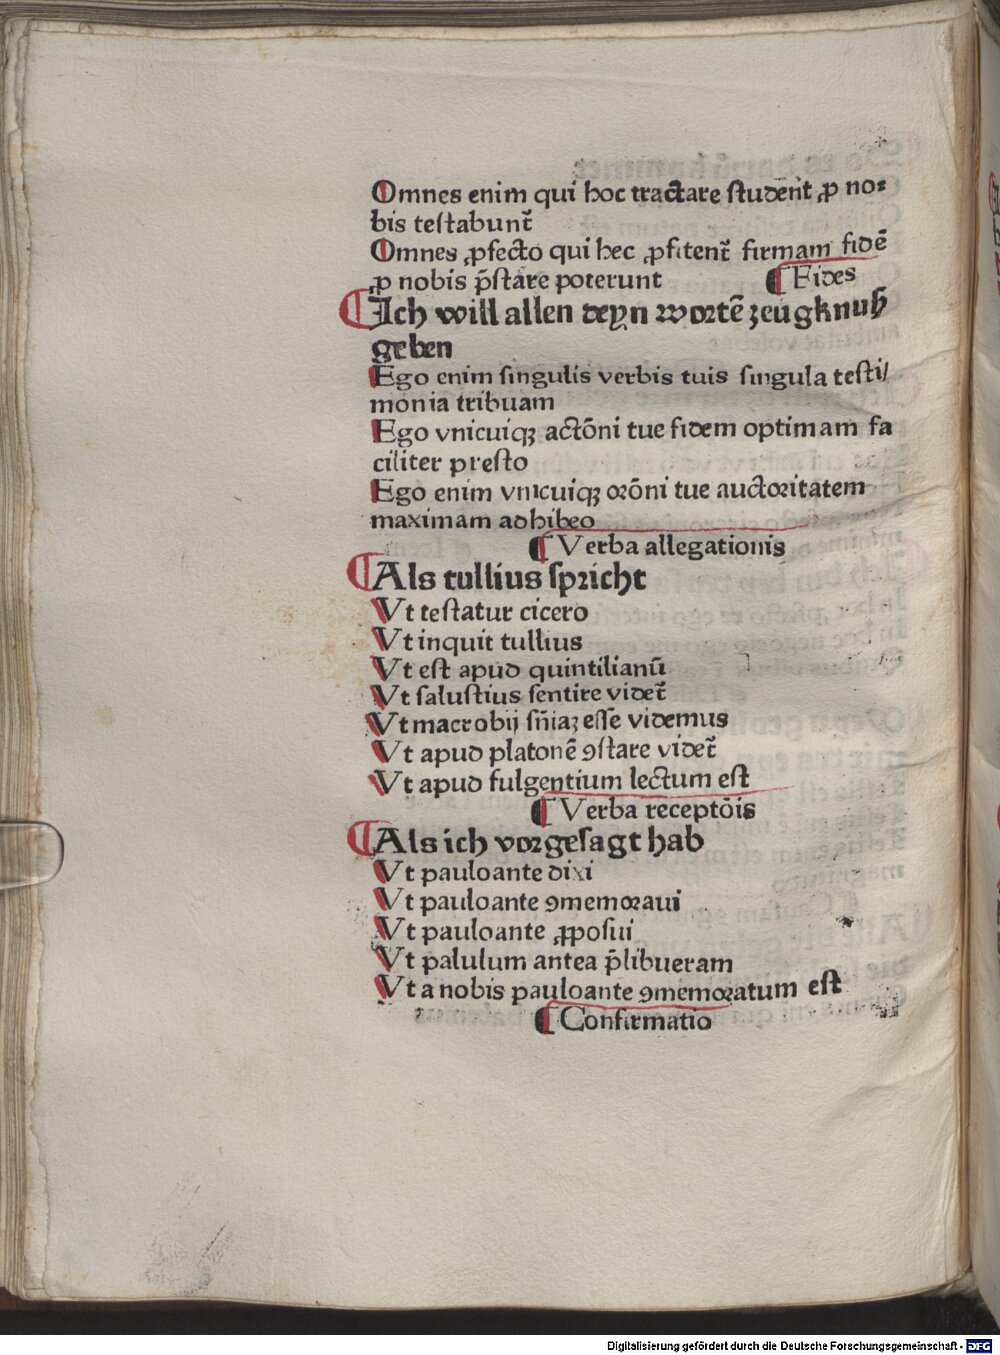 Omnes enim qui hoc tractare studēnt ꝓ no⸗
bis testabunt᷑
Omnes ꝓfecto qui hec ꝓfitent᷑ firmam fidē
ꝓ nobis p̄stare poterunt ¶ Fides
¶ Ich will allen deyn wortē zeugknuß
geben
Ego enim singulis verbis tuis singula testi/
monia tribuam
Ego vnicuiqꝫ actōni tue fidem optimam fa
ciliter presto
Ego enim vnicuiqꝫ orōni tue auctoritatem
maximam adhibeo
¶ Verba allegationis
¶ Als tullius spricht
Vt testatur cicero
Vt inquit tullius
Vt est apud quintilianū
Vt salustius sentire videt᷑
Vt macrobij sn̄iaꝫ esse videmus
Vt apud platonē ꝯstare videt᷑
Vt apud fulgentium lectum est
¶ Verba receptōis
¶ Als ich vorgesagt hab
Vt pauloante dixi
Vt pauloante ꝯmemoraui
Vt pauloante ꝓposui
Vt palulum antea p̄libueram
Vt a nobis pauloante ꝯmemoratum est
¶ Confirmatio
Digitalisierung gefördert durch die Deutsche Forschungsgemeinschaft - DFG